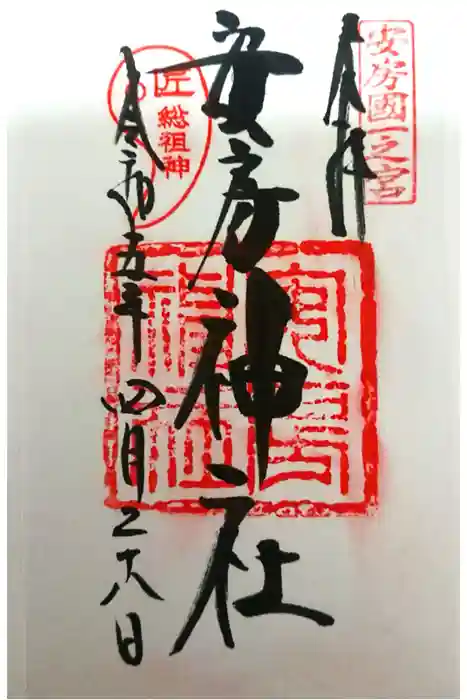 安房國一之宮
奉拝
安房神社
匠
総祖神
安房神社
令和五年四月二十八日